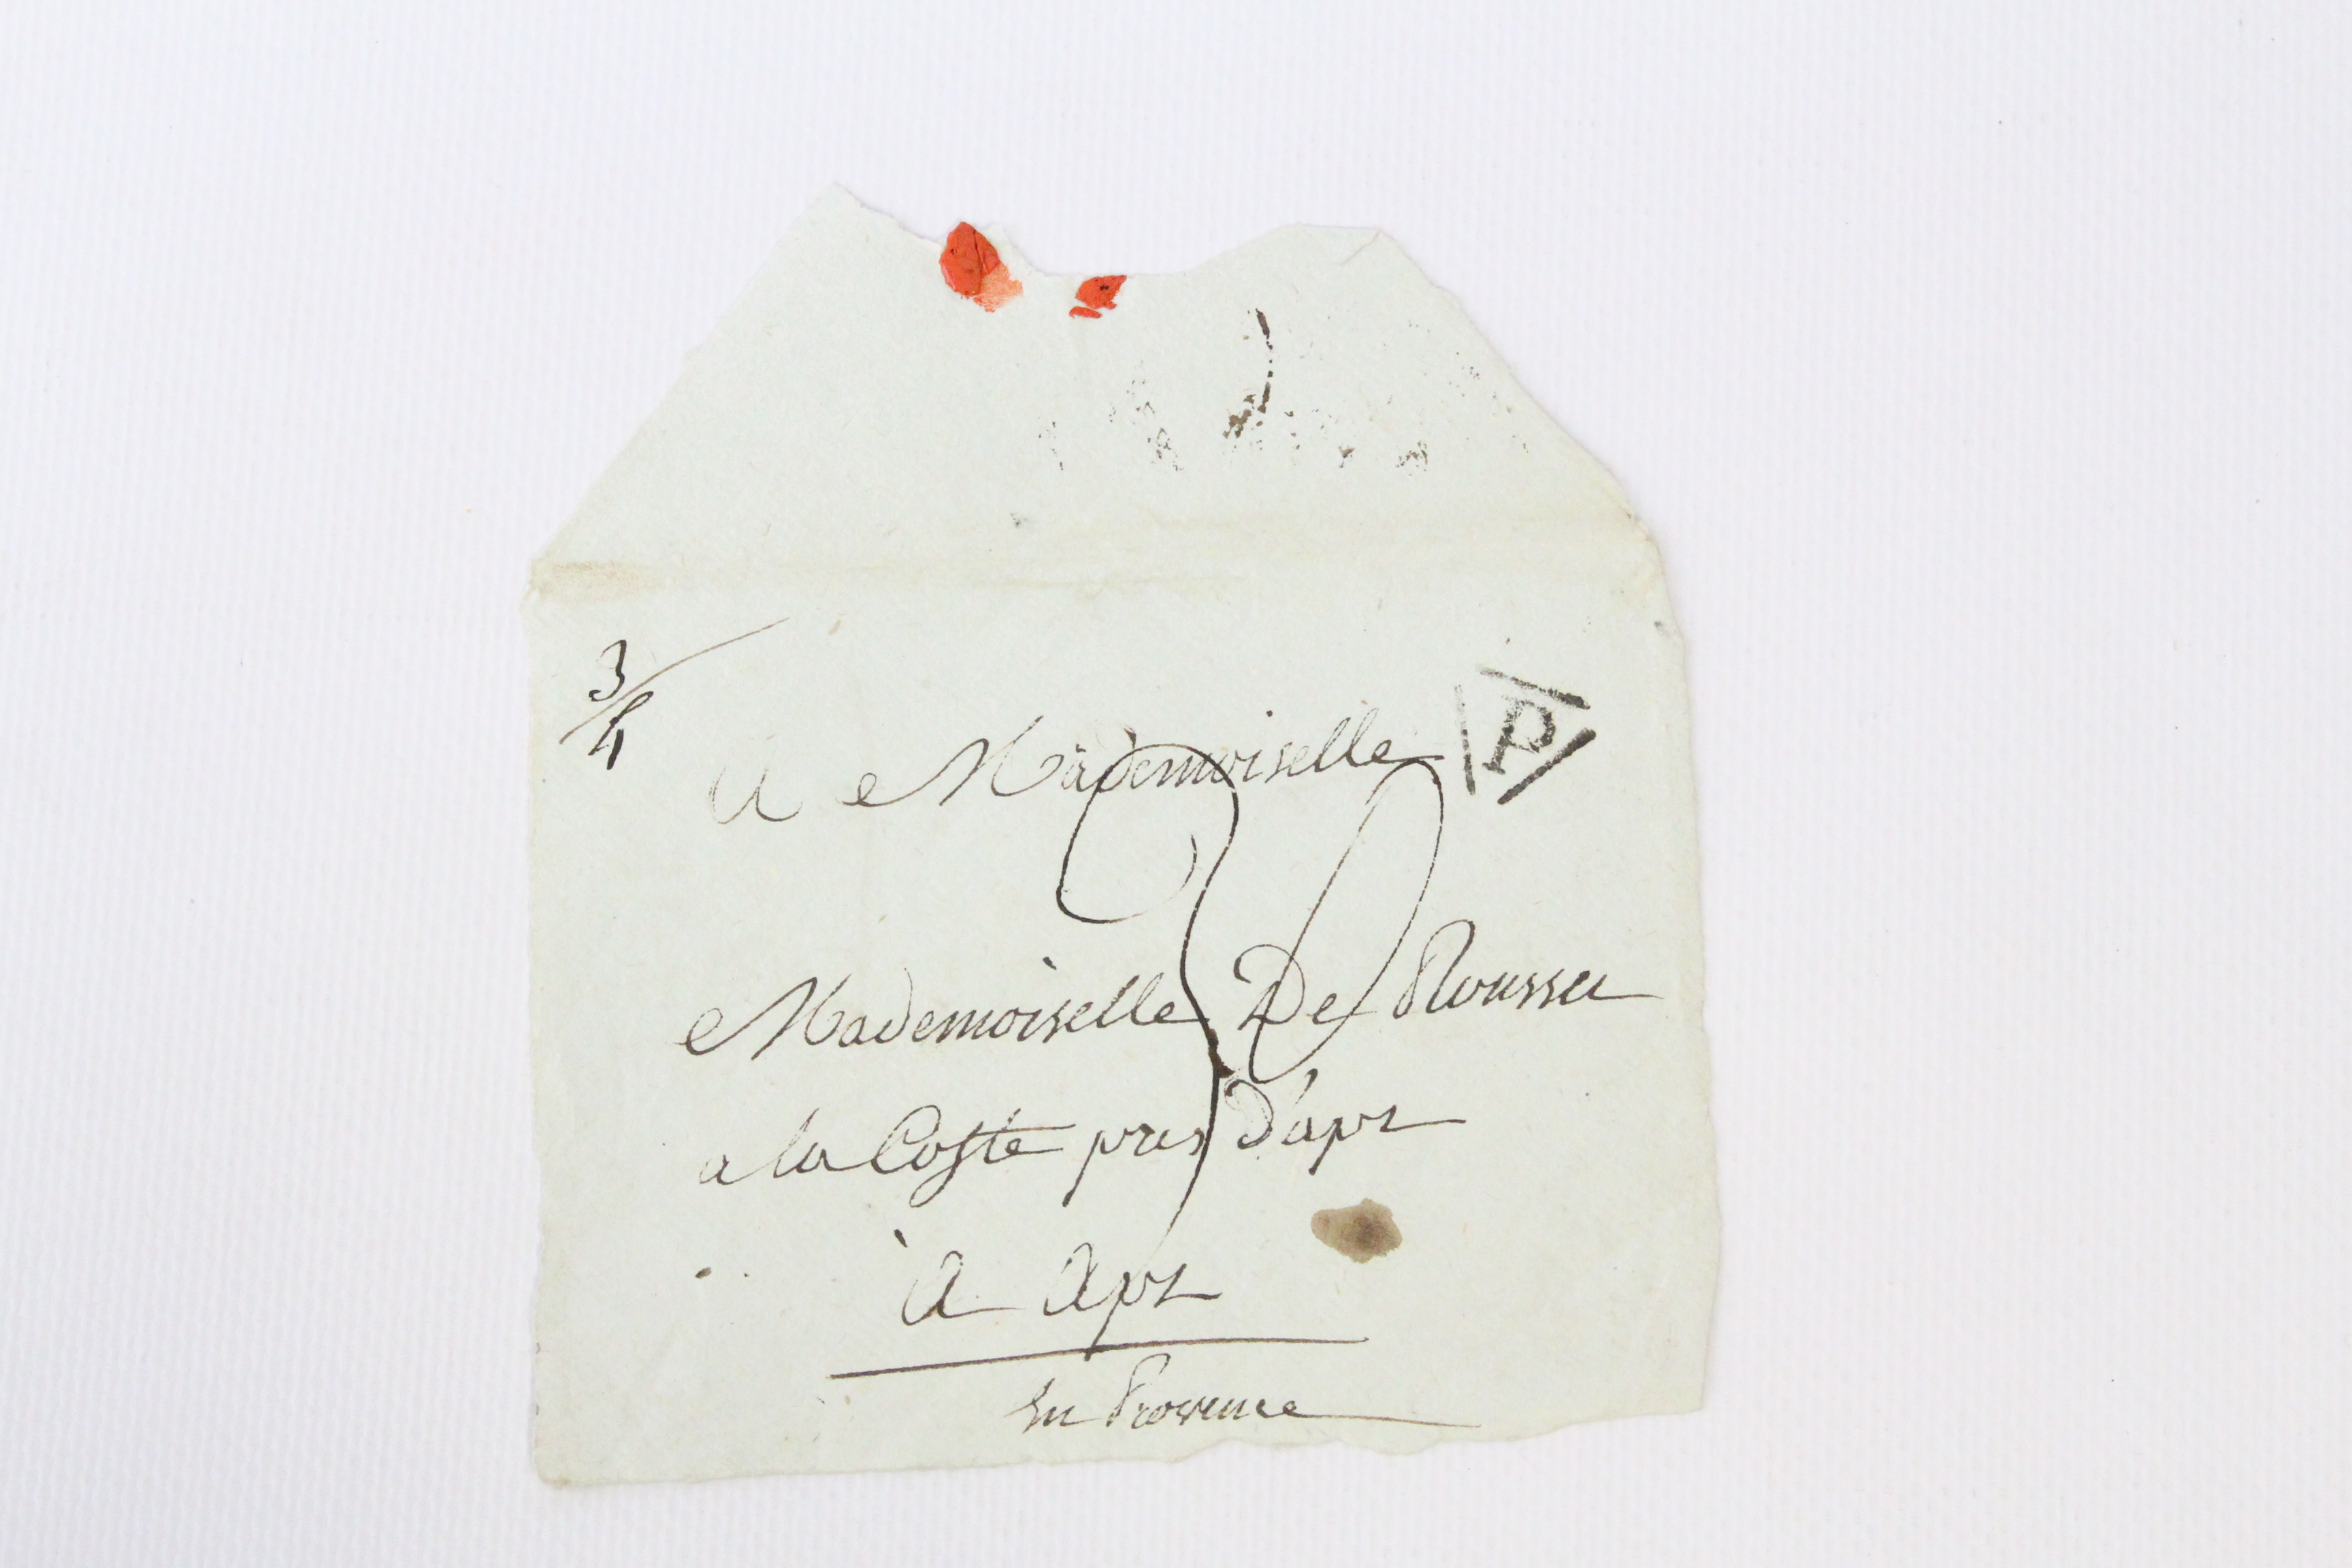 3/4
A Mademoiselle
P
Mademoiselle De Rousset
a la Coste pres d'apt
à Apt
en Provence